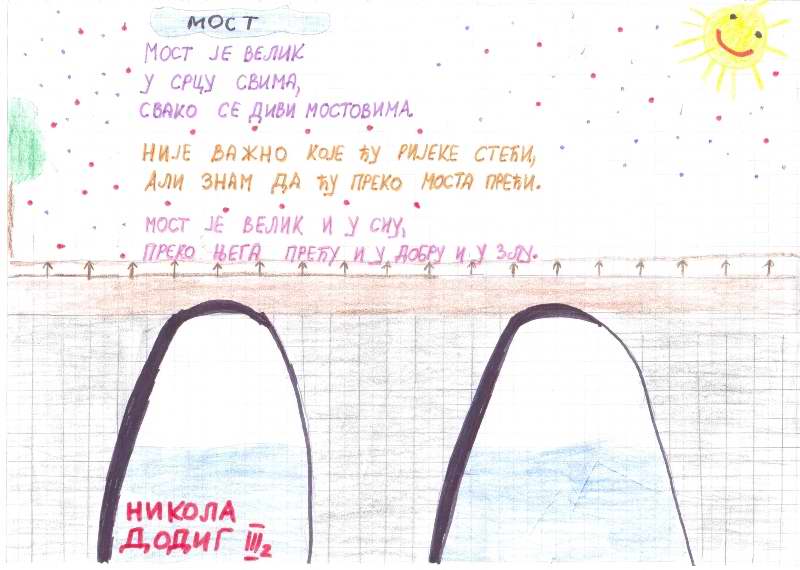 МОСТ
МОСТ ЈЕ ВЕЛИК
У СРЦУ СВИМА,
СВАКО СЕ ДИВИ МОСТОВИМА.
НИЈЕ ВАЖНО КОЈЕ ЋУ РИЈЕКЕ СТЕЋИ,
АЛИ ЗНАМ ДА ЋУ ПРЕКО МОСТА ПРЕЋИ.
МОСТ ЈЕ ВЕЛИК И У СНУ,
ПРЕКО ЊЕГА ПРЕЂУ И У ДОБРУ И У ЗЛУ.
НИКОЛА
ДОДИГ III2